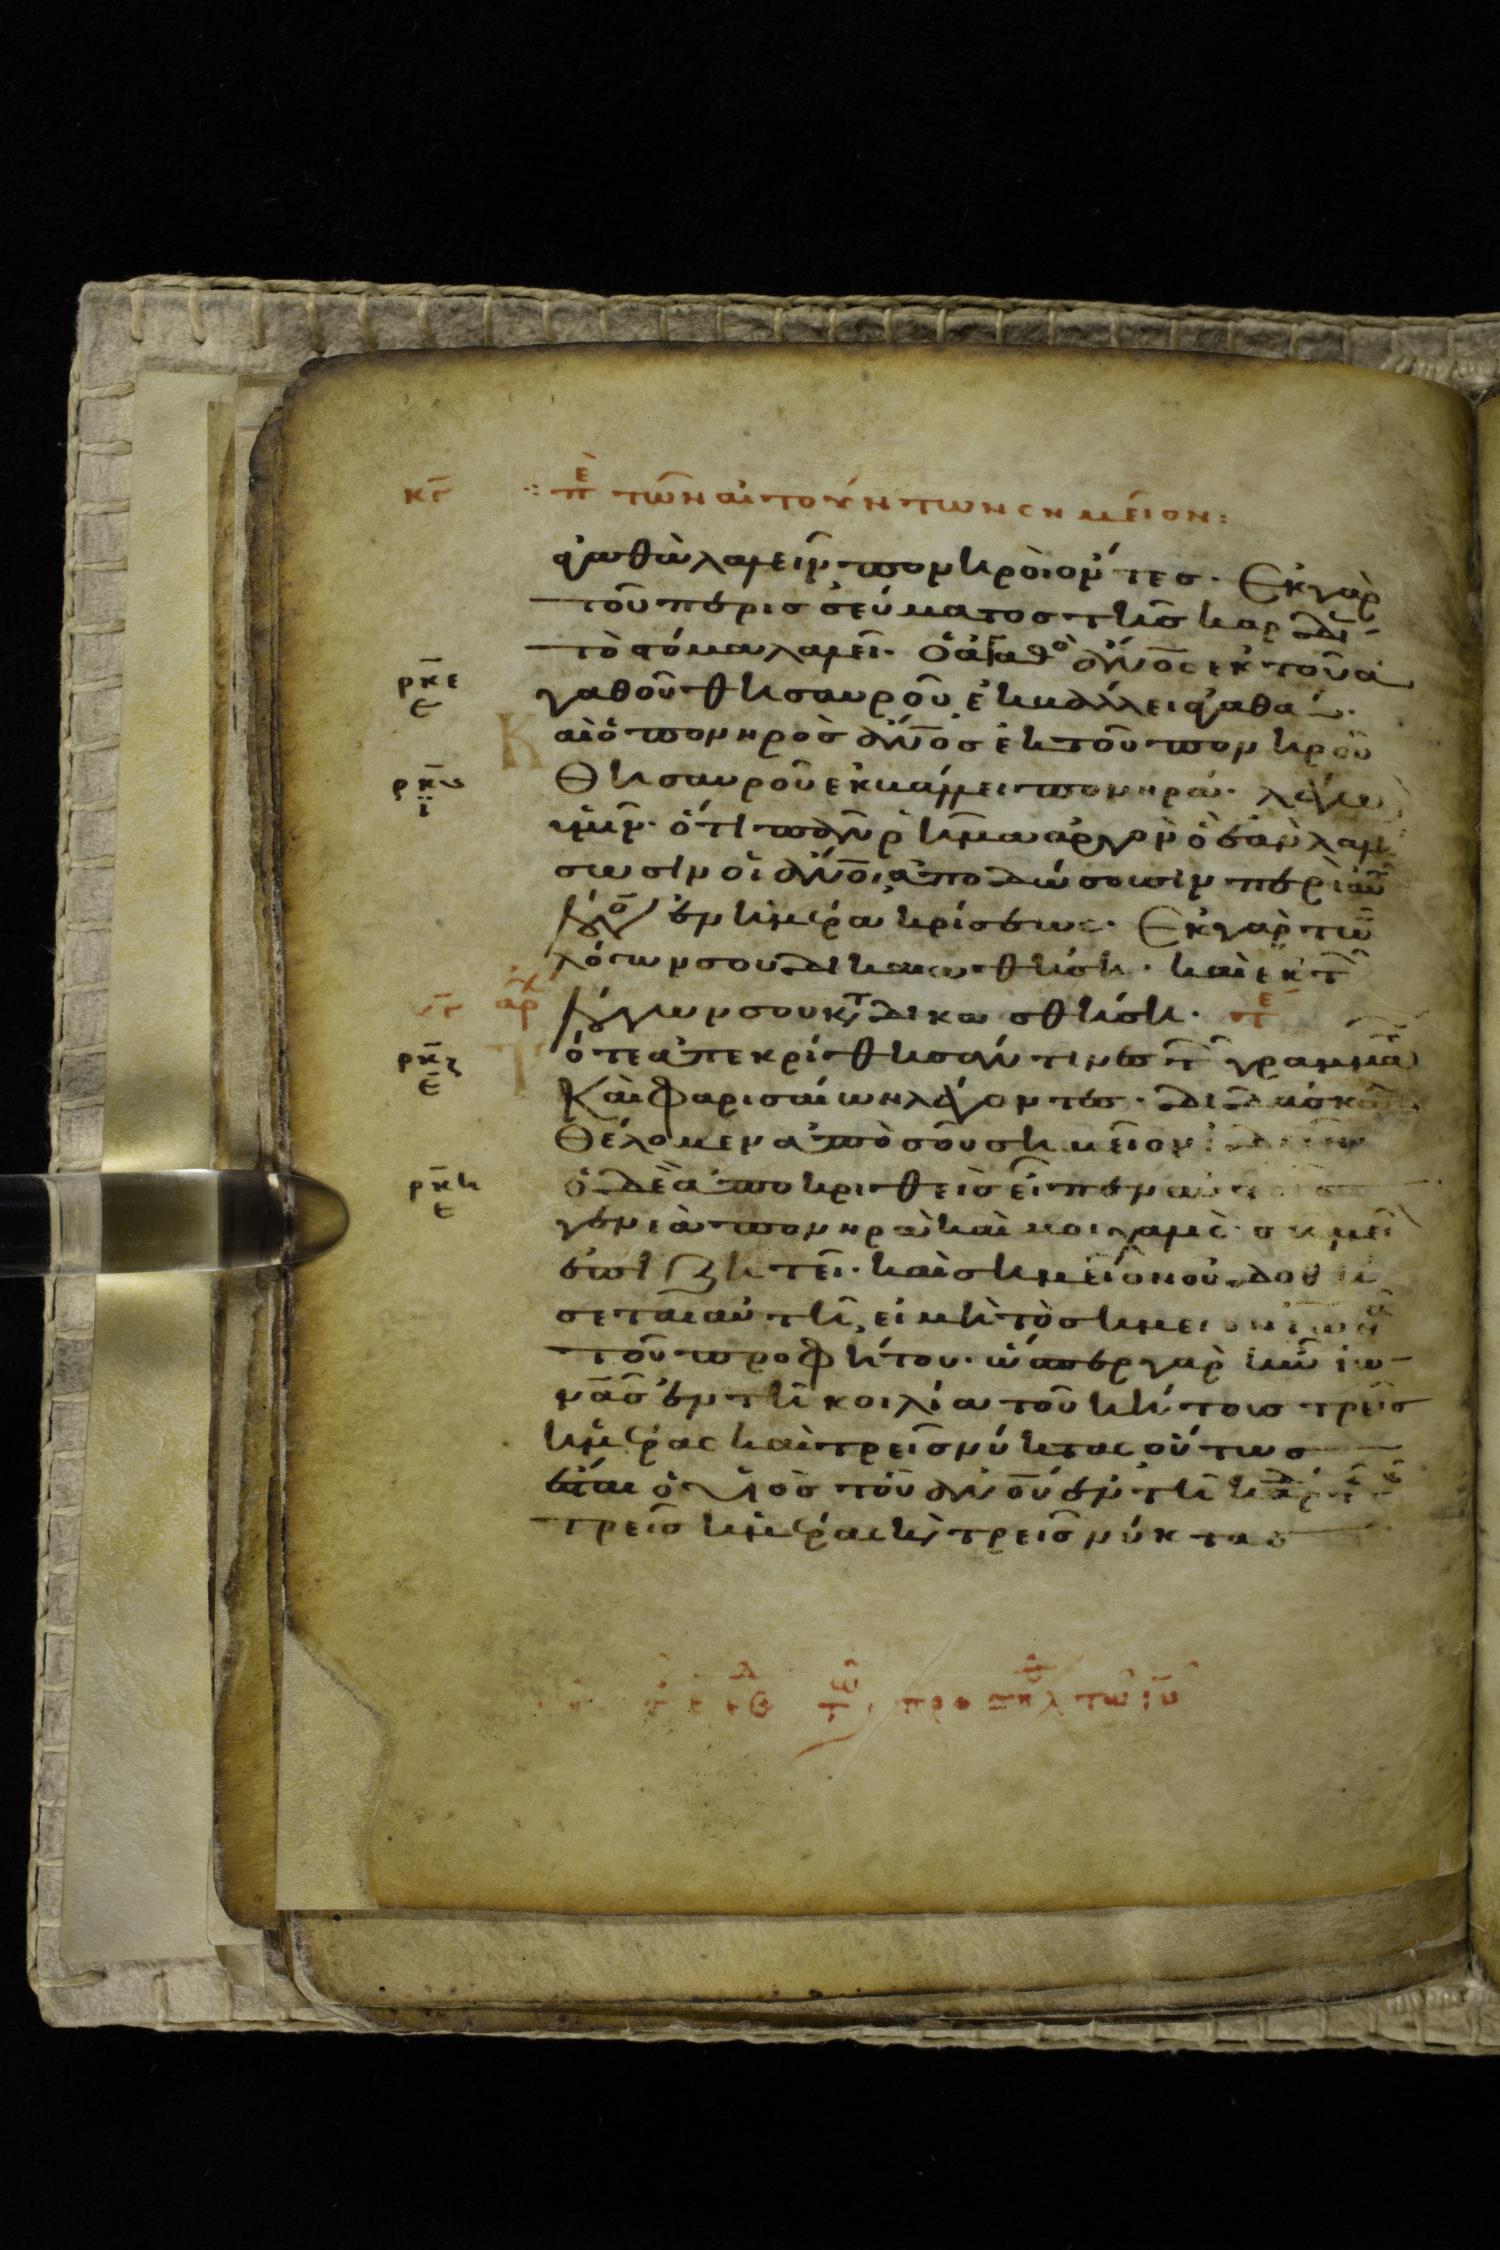 κγ ⁘ πε τῶν αἰτούντων σημεῖον:
ἀγαθὰ λαλεῖν πονηροὶ ὄντες. Ἐκ γὰρ
τοῦ περισσεύματος τῆς καρδί
τὸ στόμα λαλεῖ. Ὁ ἀγαθὸ ἄνο̅ς ἐκ τοῦ ἀ
ρκε ε γαθοῦ θησαυροῦ ἐκβάλλει ἀγαθά.
Καὶ ὁ πονηρὸς ἄνο̅ς ἐκ τοῦ πονηροῦ
ρκς ι θησαυροῦ ἐκβάλλει πονηρά. λέγω
ὑμῖν. ὅτι πᾶν ῥῆμα ἀργὸν ὃ ἐὰν λαλή
σωσιν οἱ ἄνο̅ι, ἀποδώσουσιν περὶ αὐτ
λόγο ἐν ἡμέρα κρίσεως. Ἐκ γὰρ τῶ
λόγων σου δικαιωθήση. καὶ ἐκ τ
αρχ λόγων σου κτ δικασθήση. τε
ρκζ ε Τότε ἀπεκρίθησάν τινες τ γραμμα
Καὶ φαρισαίων λέγοντες. διδάσκα
θέλομεν ἀπὸ σοῦ σημεῖον ἰδεῖν
ρκη ε ὁ δὲ ἀποκριθεὶς εἶπεν αὐτοῖς
γενεὰ πονηρὰ καὶ μοιχαλὶς σημεῖ
ἐπιζητεῖ. καὶ σημεῖον οὐ δοθή
σεται αὐτῆ, εἰ μὴ τὸ σημεῖον ἰωνᾶ
τοῦ προφήτου. ὥσπερ γὰρ ἦν ἰω
νᾶς ἐν τῆ κοιλία τοῦ κήτους τρεῖς
ἡμέρας καὶ τρεῖς νύκτας οὕτως
ἔσται ὁ υἱὸς τοῦ ἀνο̅ῦ ἐν τῆ καρδ τ γ
τρεῖς ἡμέρας κ τρεῖς νύκτας
προσηλ τῶ ιυ